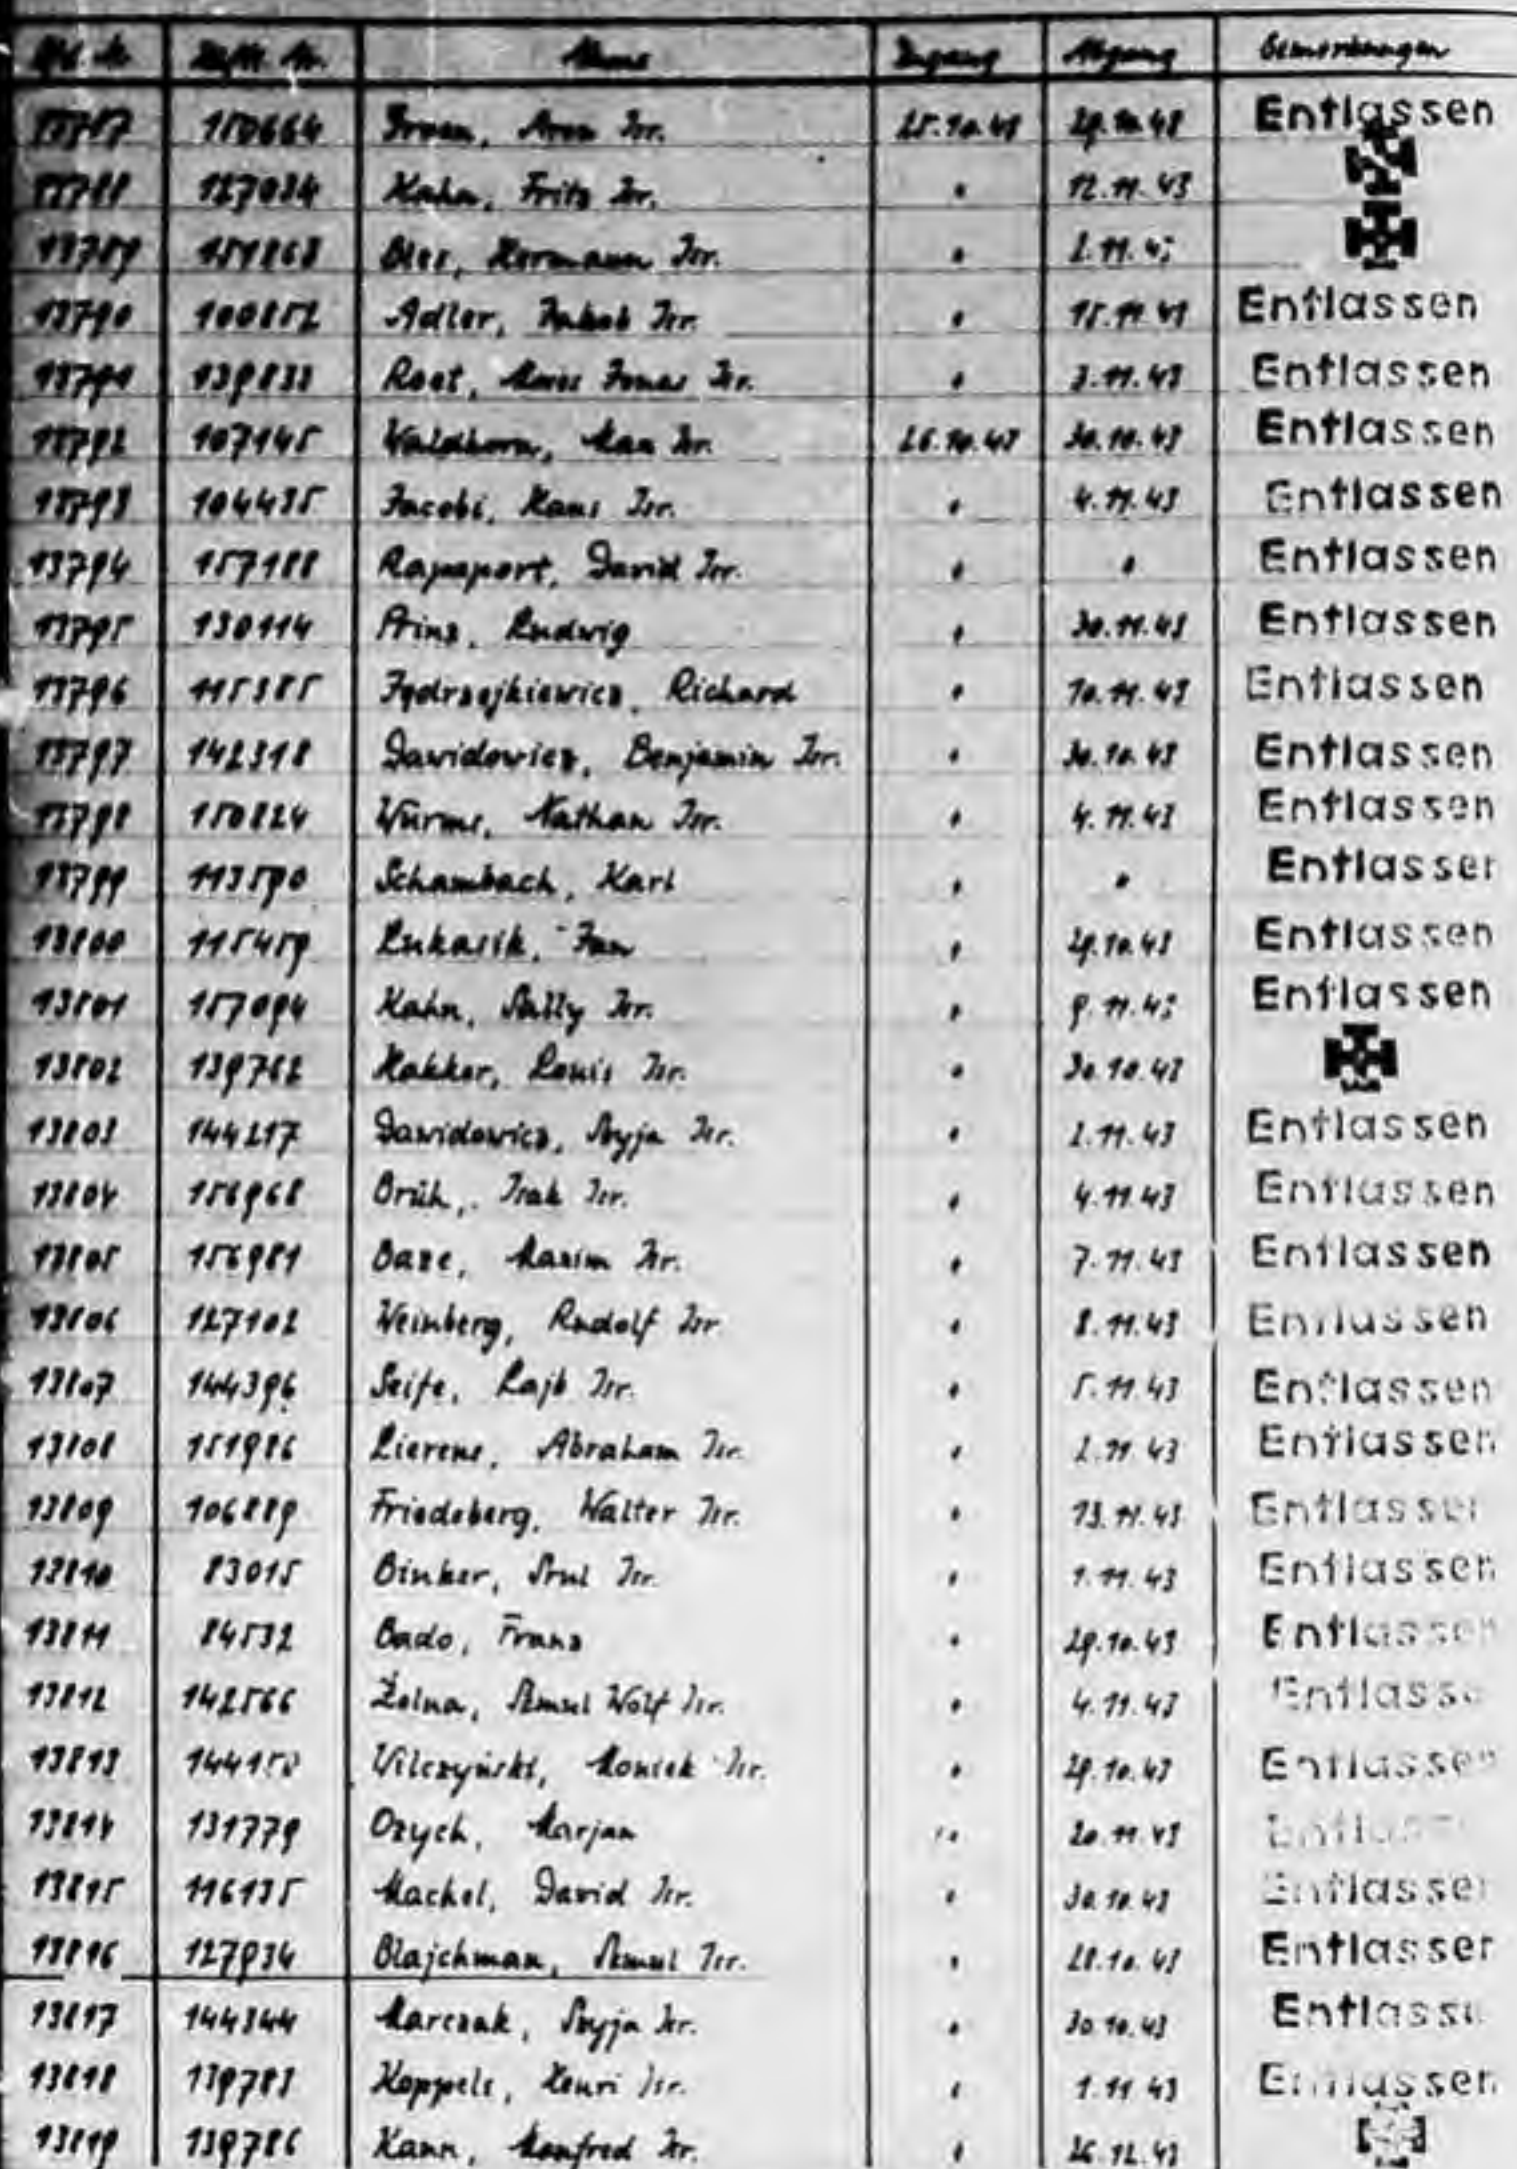 Lfd. Nr. Häftl. Nr. Name Zugang Abgang Bemerkungen
13787 150664 Aron Isr. 25.10.43 29.10.43 Entlassen
13788 127084 Kahn, Fritz Isr. " 12.11.43
13789 151868 Bles, Hermann Isr. " 2.11.43
13790 100852 Adler, Jakob Isr. " 15.11.43 Entlassen
13791 139833 Root, Jonas Isr. " 3.11.43 Entlassen
13792 107145 Waldhorn, Max Isr. 26.10.43 30.10.43 Entlassen
13793 104435 Jacobi, Hans Isr. " 4.11.43 Entlassen
13794 157188 Rapaport, David Isr. " " Entlassen
13795 130114 Prinz, Ludwig " 30.11.43 Entlassen
13796 115385 Jędrzejkiewicz, Richard " 10.11.43 Entlassen
13797 142318 Dawidowicz, Benjamin Isr. " 30.10.43 Entlassen
13798 150824 Wurms, Nathan Isr. " 4.11.43 Entlassen
13799 113590 Schambach, Karl " " Entlassen
13800 115459 Lukasik, Jan " 29.10.43 Entlassen
13801 157094 Kahn, Sally Isr. " 9.11.43 Entlassen
13802 139762 Hakker, Louis Isr. " 30.10.43
13803 144217 Dawidowicz, Szyja Isr. " 2.11.43 Entlassen
13804 156968 Brüh, Isak Isr. " 4.11.43 Entlassen
13805 156981 Daze, Maxim Isr. " 7.11.43 Entlassen
13806 127102 Weinberg, Rudolf Isr. " 8.11.43 Entlassen
13807 144396 Seife, Lajb Isr. " 5.11.43 Entlassen
13808 151986 Lierens, Abraham Isr. " 2.11.43 Entlassen
13809 106889 Friedeberg, Walter Isr. " 13.11.43 Entlassen
13810 83015 Binker, Srul Isr. " 1.11.43 Entlassen
13811 84532 Bado, Franz " 29.10.43 Entlassen
13812 142566 Żelna, Szmul Wolf Isr. " 4.11.43 Entlassen
13813 Wilczyński, Moniek Isr. " 29.10.43 Entlassen
13814 131779 Ozych, Marjan " 20.11.43 Entlassen
13815 116135 Machel, David Isr. " 30.10.43 Entlassen
13816 127934 Blajchman, Szmul Isr. " 28.10.43 Entlassen
13817 144344 Marczak, Szyja Isr. " 30.10.43 Entlassen
13818 139783 Koppels, Henri Isr. " 1.11.43 Entlassen
13819 139786 Kann, Manfred Isr. " 26.12.43